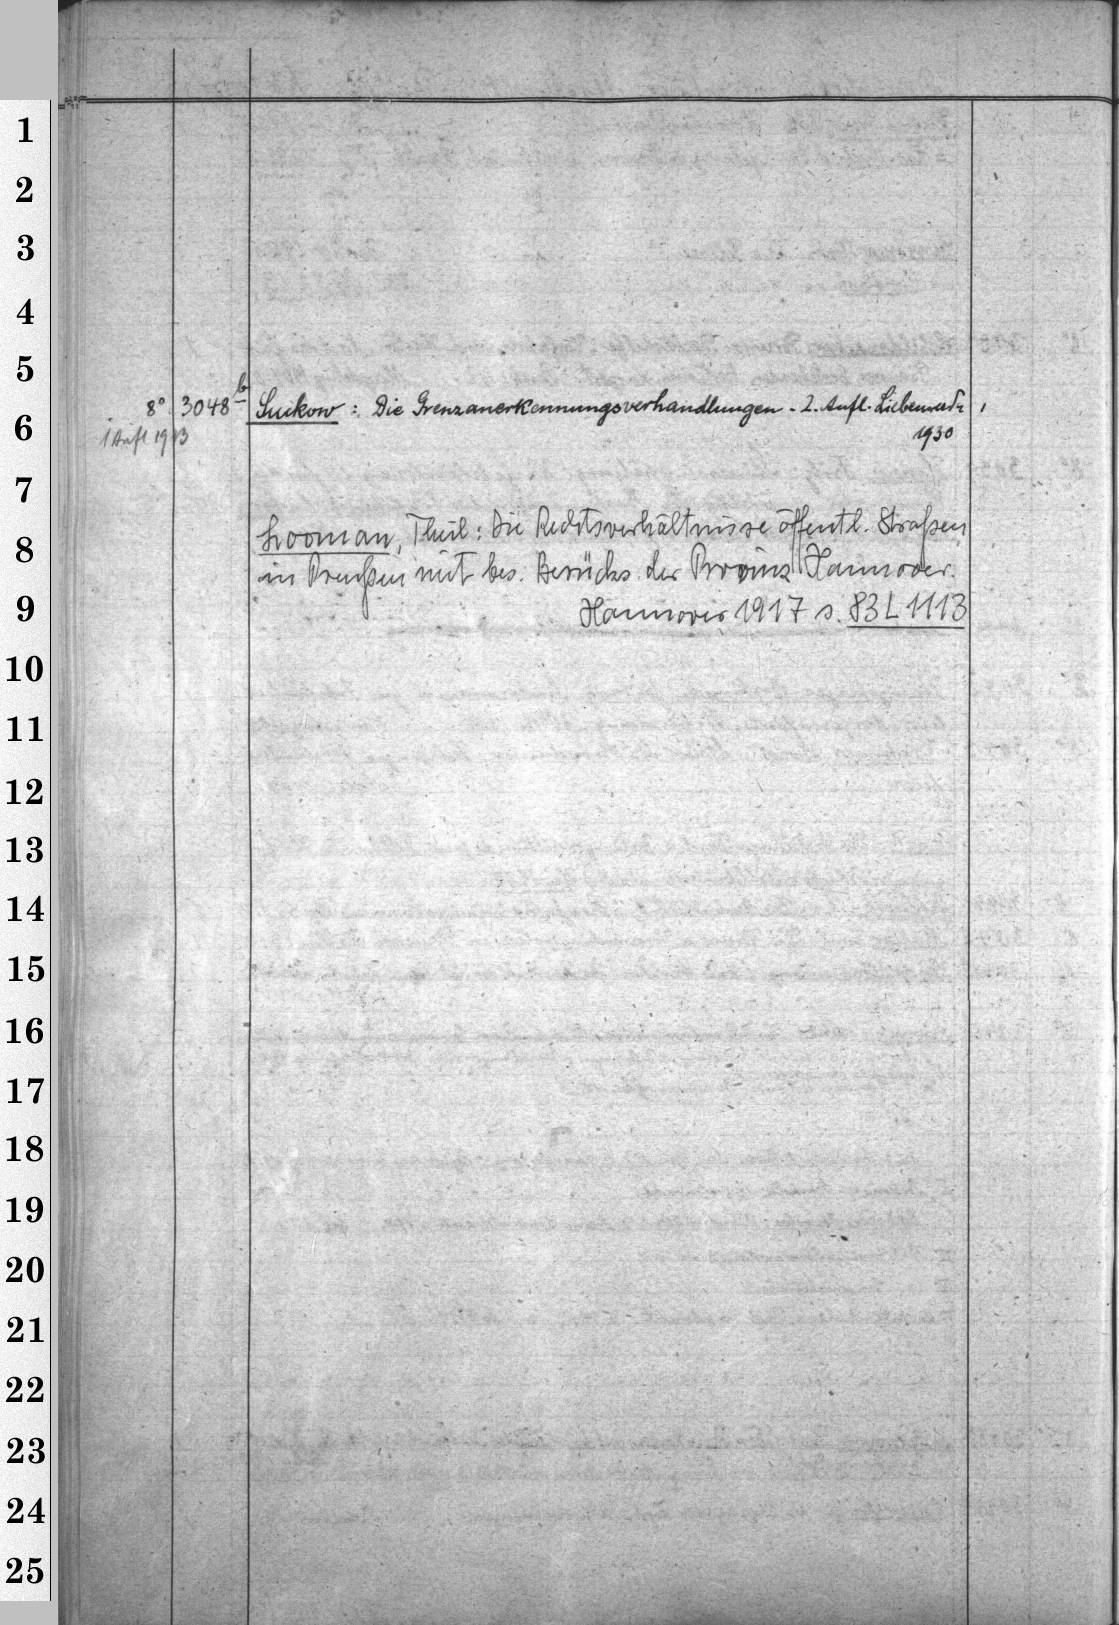 1
2
3
4
5
8° 3048 b Suckow : Die Grenzanerkennungsverhandlungen - 2. Aufl. Liebenwerda
6
1 Aufl 1913
1930
7
Looman, Theil : Die Rechtsverhältnisse öffentl. Straßen
8
in Preußen mit bes. Berücks. der Provinz Hannover.
9
Hannover 1917 s. 83 L 1113
10
11
12
13
14
15
16
17
18
19
20
21
22
23
24
25